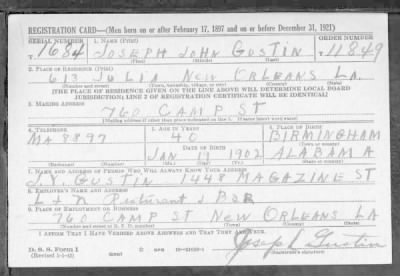 REGISTRATION CARD—(Men born on or after February 17, 1897 and on or before December 31, 1921)
SERIAL NUMBER 1. NAME (Print) ORDER NUMBER
T 1684 JOSEPH JOHN GUSTIN T 11849
(First) (Middle) (Last)
2. PLACE OF RESIDENCE (Print)
613 JULIA NEW ORLEANS LA.
(Number and street) (Town, township, village, or city) (County) (State)
[THE PLACE OF RESIDENCE GIVEN ON THE LINE ABOVE WILL DETERMINE LOCAL BOARD
JURISDICTION; LINE 2 OF REGISTRATION CERTIFICATE WILL BE IDENTICAL]
3. MAILING ADDRESS
760 CAMP ST
[Mailing address if other than place indicated on line 2. If same insert word same]
4. TELEPHONE 5. AGE IN YEARS 6. PLACE OF BIRTH
MA 8897 40 BIRMINGHAM
DATE OF BIRTH (Town or county)
JAN 19 1902 ALABAMA
(Exchange) (Number) (Mo.) (Day) (Yr.) (State or country)
7. NAME AND ADDRESS OF PERSON WHO WILL ALWAYS KNOW YOUR ADDRESS
J. V. GUSTIN 1448 MAGAZINE ST
8. EMPLOYER'S NAME AND ADDRESS
L + N Resturant & BAR
9. PLACE OF EMPLOYMENT OR BUSINESS
760 CAMP ST NEW ORLEANS LA
(Number and street or R. F. D. number) (Town) (County) (State)
I AFFIRM THAT I HAVE VERIFIED ABOVE ANSWERS AND THAT THEY ARE TRUE.
D. S. S. Form 1
(Revised 1-1-42) (over)
Joseph Gustin
(Registrant's signature)